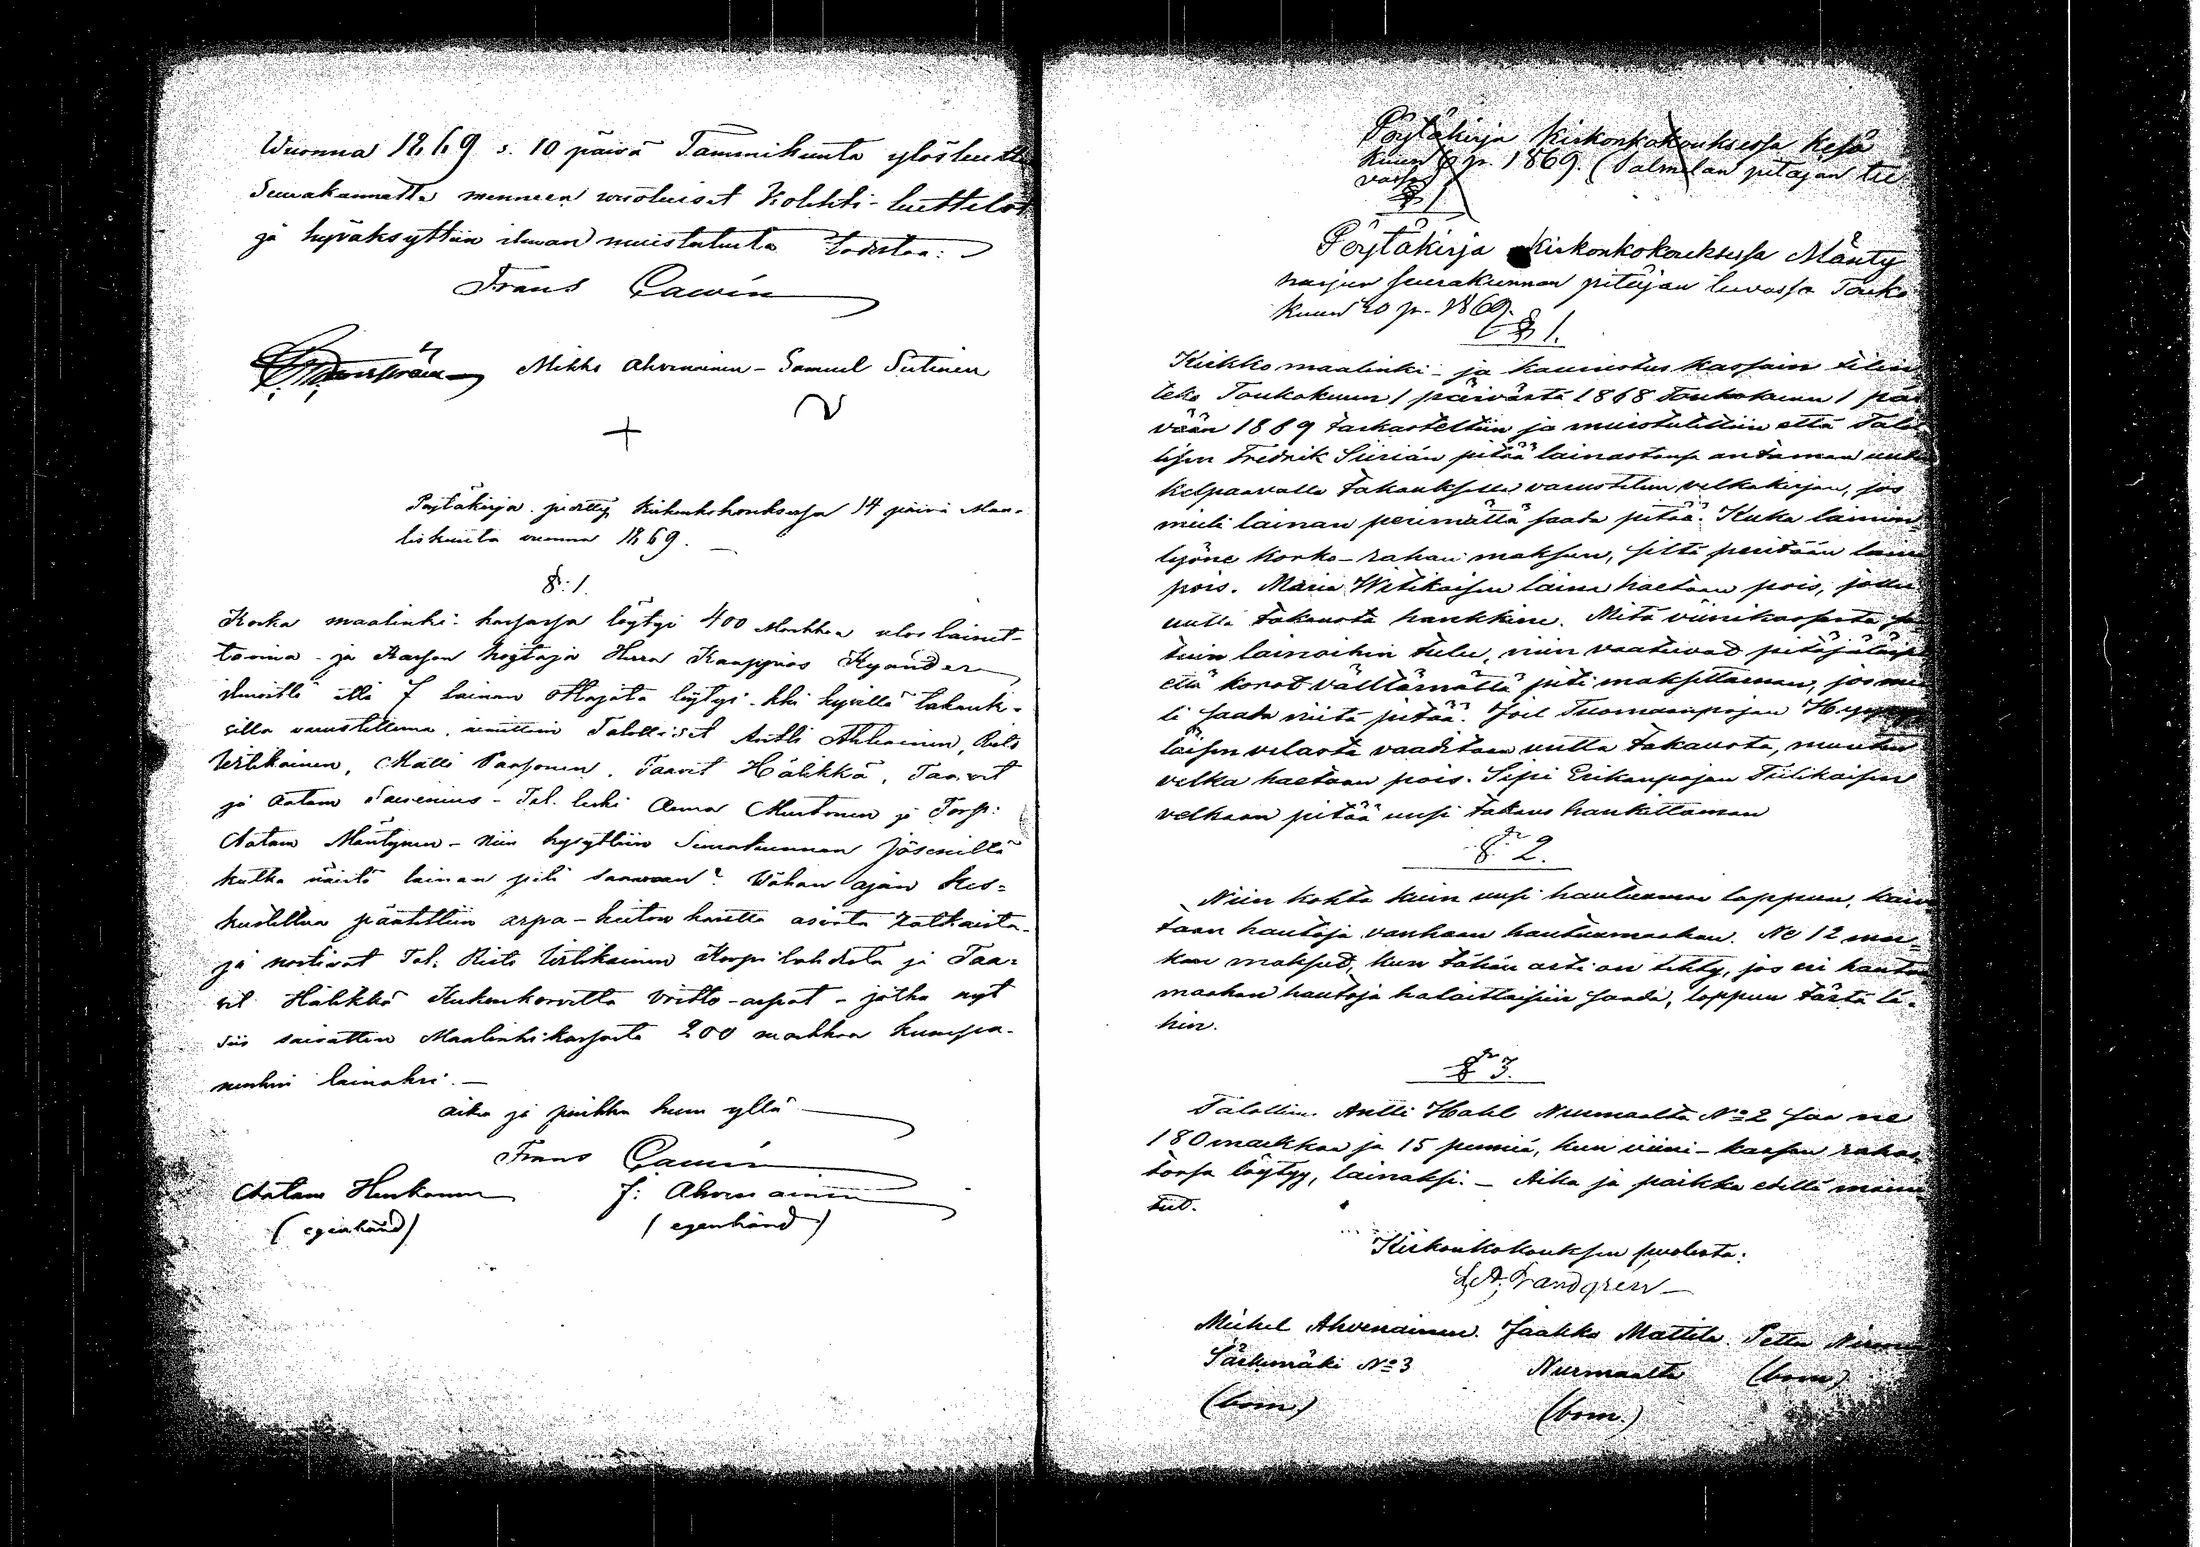 Wuonna 1869 s. 10 päivä Tammikuuta ylösluettu
Seurakunnalle menneen vuotuiset Kolehti-luettelot
ja hyväksyttiin ilman muistutusta todistaa:
Frans
Mikko Ahvenainen - Samuel Sutinen
Pöytäkirja pidetty Kirkonkokouksessa 14 päivä Maa-
liskuuta vuonna 1869.
§. 1.
Koska maalinki-kassassa löytyi 400 Markkaa ulos lainat-
tavina - ja Kassan hoitaja Herra Kauppias Kyander
ilmoitti että 7 lainan ottajata löytyi - kki hyvillä takauk-
silla varustettuna, nimittäin Talolliset Antti Ahlainen, Risto
Virtikainen, Matti Paasonen, Taavit Hälikkä, Taavit
ja Aatam - Tal. leski Anna Muntonen ja Torp:
Aatam Mäntynen - Niin kysyttiin Seurakunnan jäseniltä
kutka näistä lainan piti saaman? Vähän ajan kes-
kusteltua päätettiin arpa-heiton kautta asiata ratkaista
ja nostivat Tal. Risto Korpilahdesta ja Taa-
vit Hälikkä voitto-arpat - jotka nyt
siis saisivat Maalinki kassasta 200 markkaa kumpa-
nenkin lainaksi. -
aika ja paikka kuin yllä
Frans
Aatam Henkonen J: Ahvenainen
(egenhänd) (egenhänd)
Pöytäkirja Kirkonkokouksessa kesä
kuun 6 p. 1869. (Salmelan pitäjän tu
vassa
§ 1
Pöytäkirja Kirkonkokouksessa Mänty
harjun seurakunnan pitäjän tuvassa Touko
kuun 20 p. 1869.
§ 1.
Kirkko maalinki- ja kaunistus kassain tilin
teko Toukokuun 1 päivästä 1868 Toukokuun 1 päi
vään 1869 tarkastettiin ja muistutettiin että Talol
lisen Fredrik Siiriän pitää lainastansa antaman uuden
kelpaavalla takauksella varustetun velkakirjan, jos
mieli lainan perimättä saada pitää. Kuka laimin-
lyöne korko-rahan maksun, siltä peritään laina
pois. Maria Witikaisen laina haetaan pois, jollei
uutta takausta hankkine. Mitä viinikassasta
tuin lainoihin tulee, niin vaativat pitäjäläiset
että korot välttämättä piti maksettaman, jos mie
li saada niitä pitää. Joel Tuomaanpojan
läisen velasta vaaditaan uutta takausta, muuten
velka haetaan pois. Sipi Erikanpojan Tiilikaisen
velkaan pitää uusi takaus hankittaman
§ 2.
Niin kohta kuin uusi hautausmaa loppuu, kaive
taan hautoja vanhaan hautausmaahan. Ne 12 mar-
kan maksut, kun tähän asti on tehty, jos eri hautaus
maahan hautoja haluttaisiin saada, loppuu tästä lä-
hin.
§ 3.
Talollinen Antti Hahl Nurmaalta No 2 saa ne
180 markkaa ja 15 penniä, kun viini-kassan rahas
tossa löytyy, lainaksi. - Aika ja paikka edellä maini
tut.
Kirkonkokouksen puolesta:
Michel Ahvenainen. Jaakko Mattila. Petter
Särkemäki No 3 Nurmaalta (bom.)
(bom.) (bom.)